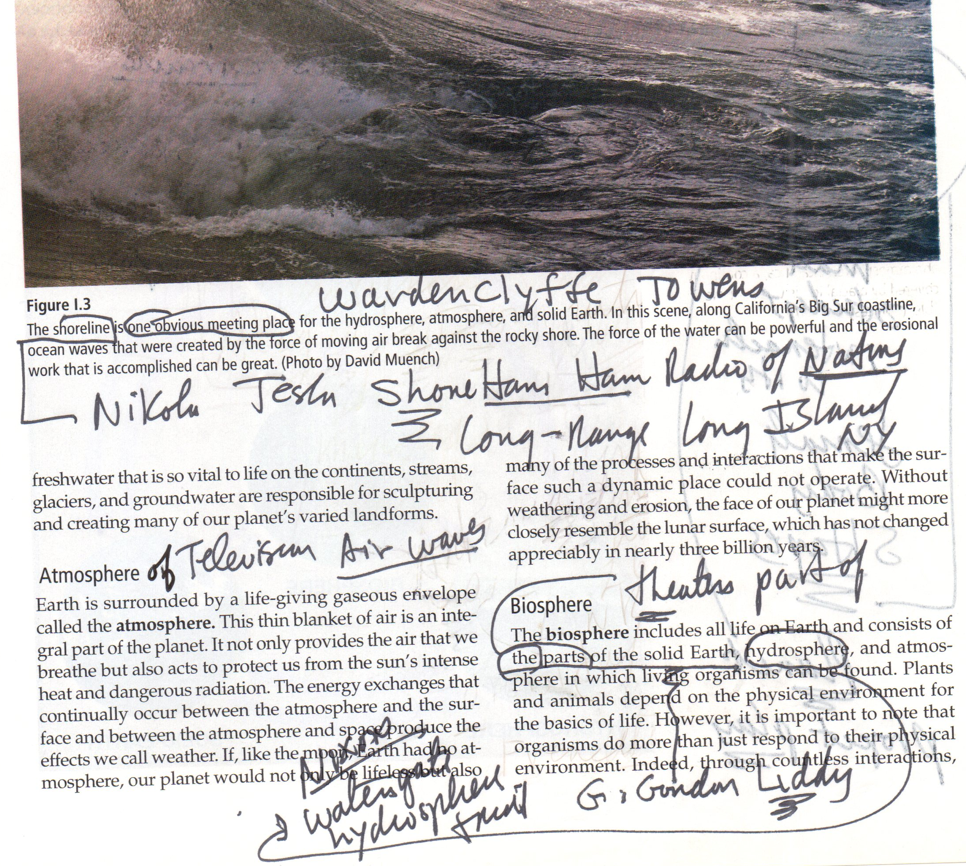 Wardenclyffe Towers
Figure I.3
The shoreline is one obvious meeting place for the hydrosphere, atmosphere, and solid Earth. In this scene, along California's Big Sur coastline,
ocean waves that were created by the force of moving air break against the rocky shore. The force of the water can be powerful and the erosional
work that is accomplished can be great. (Photo by David Muench)
Nikola Tesla Shone Ham Ham Radio of
Long-Range Long Island
NY
freshwater that is so vital to life on the continents, streams,
glaciers, and groundwater are responsible for sculpturing
and creating many of our planet's varied landforms.
Atmosphere of Television Air waves
Earth is surrounded by a life-giving gaseous envelope
called the atmosphere. This thin blanket of air is an inte-
gral part of the planet. It not only provides the air that we
breathe but also acts to protect us from the sun's intense
heat and dangerous radiation. The energy exchanges that
continually occur between the atmosphere and the sur-
face and between the atmosphere and space produce the
effects we call weather. If, like the moon, Earth had no at-
mosphere, our planet would not only be lifeless but also
Nixon
watergate
hydrosphere
many of the processes and interactions that make the sur-
face such a dynamic place could not operate. Without
weathering and erosion, the face of our planet might more
closely resemble the lunar surface, which has not changed
appreciably in nearly three billion years.
theaters part of
Biosphere
The biosphere includes all life on Earth and consists of
the parts of the solid Earth, hydrosphere, and atmos-
phere in which living organisms can be found. Plants
and animals depend on the physical environment for
the basics of life. However, it is important to note that
organisms do more than just respond to their physical
environment. Indeed, through countless interactions,
G. Gordon Liddy